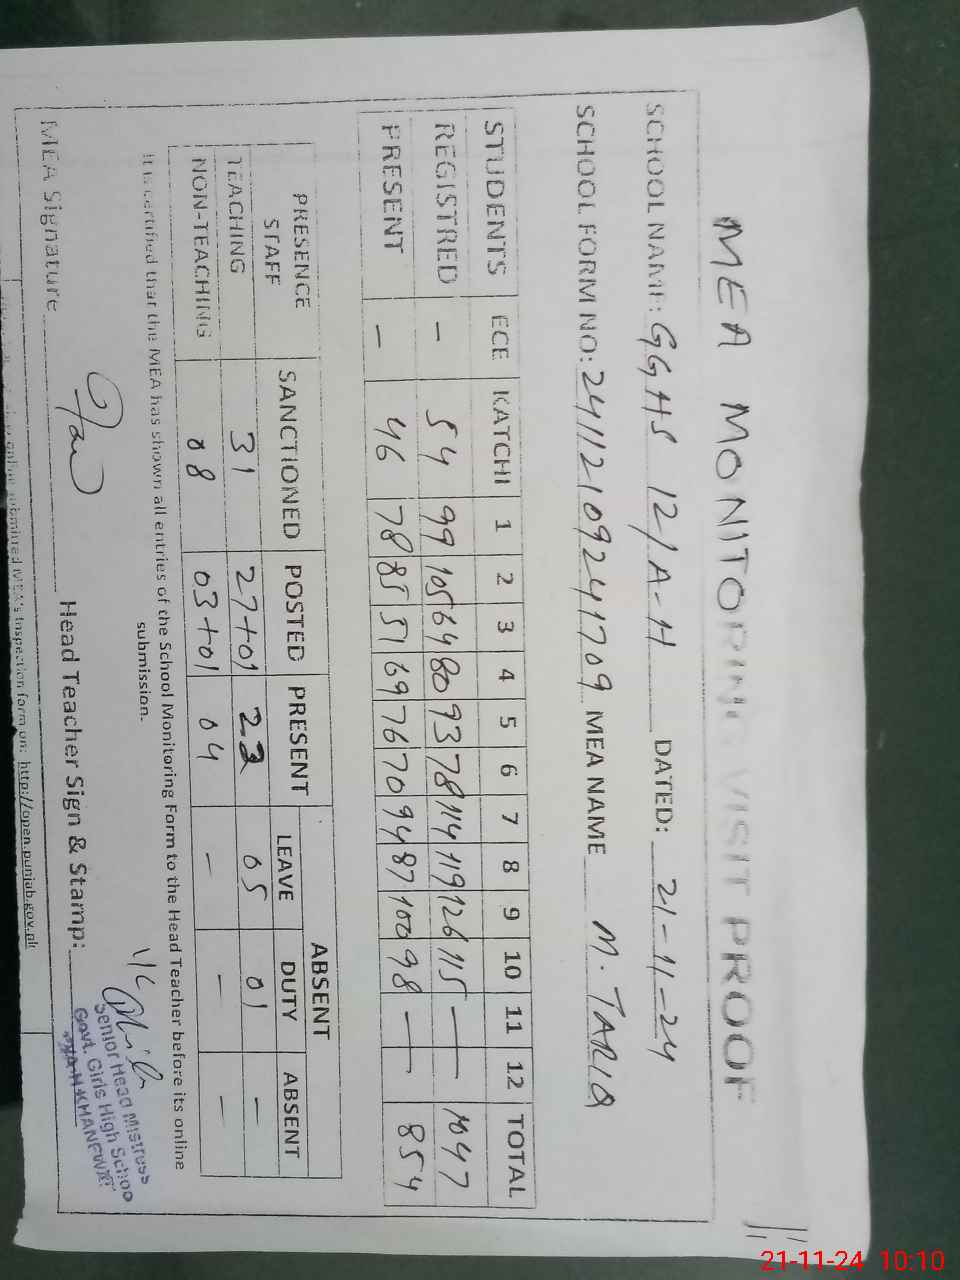 MEA MONITORING VISIT PROOF
SCHOOL NAME: GGHS 12/A-H DATED: 21-11-24
SCHOOL FORM NO: 241121092441709 MEA NAME M. TARIQ
STUDENTS ECE KATCHI 1 2 3 4 5 6 7 8 9 10 11 12 TOTAL
REGISTRED - 54 99 105 64 80 93 78 114 119 126 115 — 1047
PRESENT - 46 78 85 51 69 76 70 94 87 100 98 — 854
PRESENCE STAFF SANCTIONED POSTED PRESENT ABSENT
LEAVE DUTY ABSENT
TEACHING 31 27+01 23 05 01 -
NON-TEACHING 08 03+01 04 - - -
It is certified that the MEA has shown all entries of the School Monitoring Form to the Head Teacher before its online
submission.
MEA Signature Head Teacher Sign & Stamp:
I/C
Senior Head Mistress
Govt. Girls High School
KHANEWAL
online submitted MEA's Inspection form on: http://open.punjab.gov.pk
21-11-24 10:10